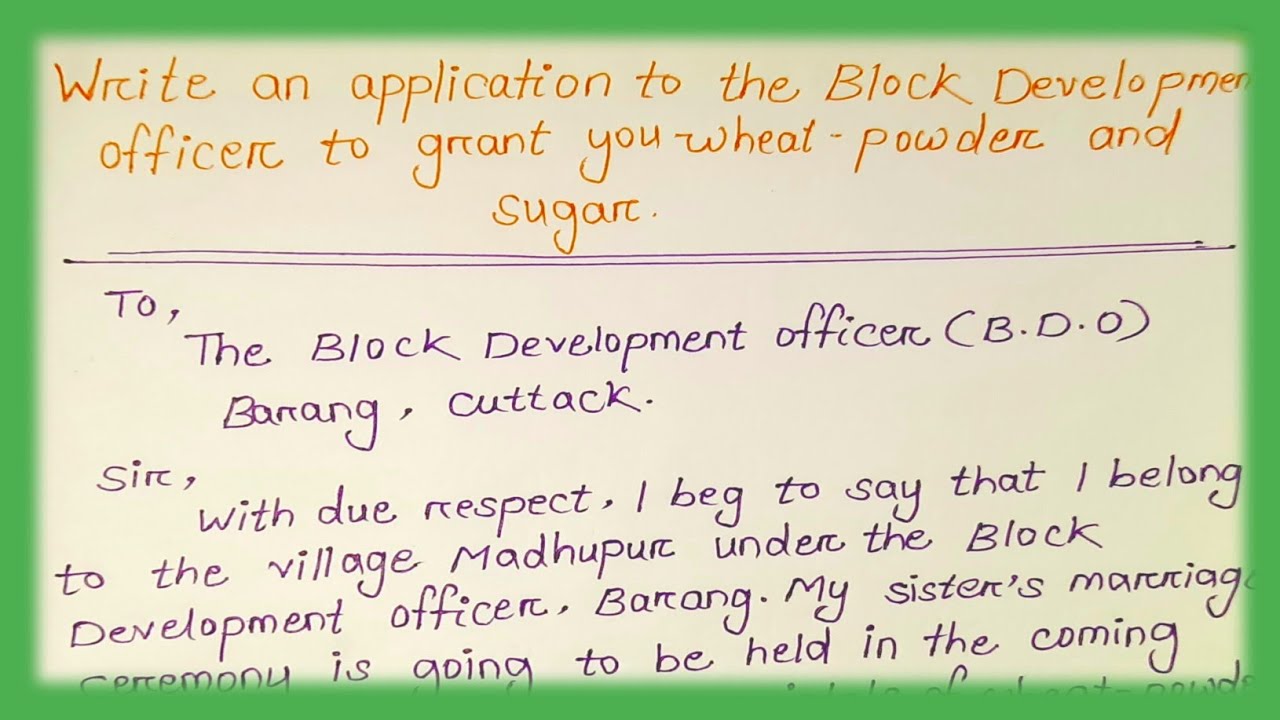 Write an application to the Block Developmen
officer to grant you wheat-powder and
sugar.
To,
The Block Development officer (B.D.O)
Barang, cuttack.
Sir,
with due respect, I beg to say that I belong
to the village Madhupur under the Block
Development officer, Barang. My sister's marriage
ceremony is going to be held in the coming
of wheat-powde